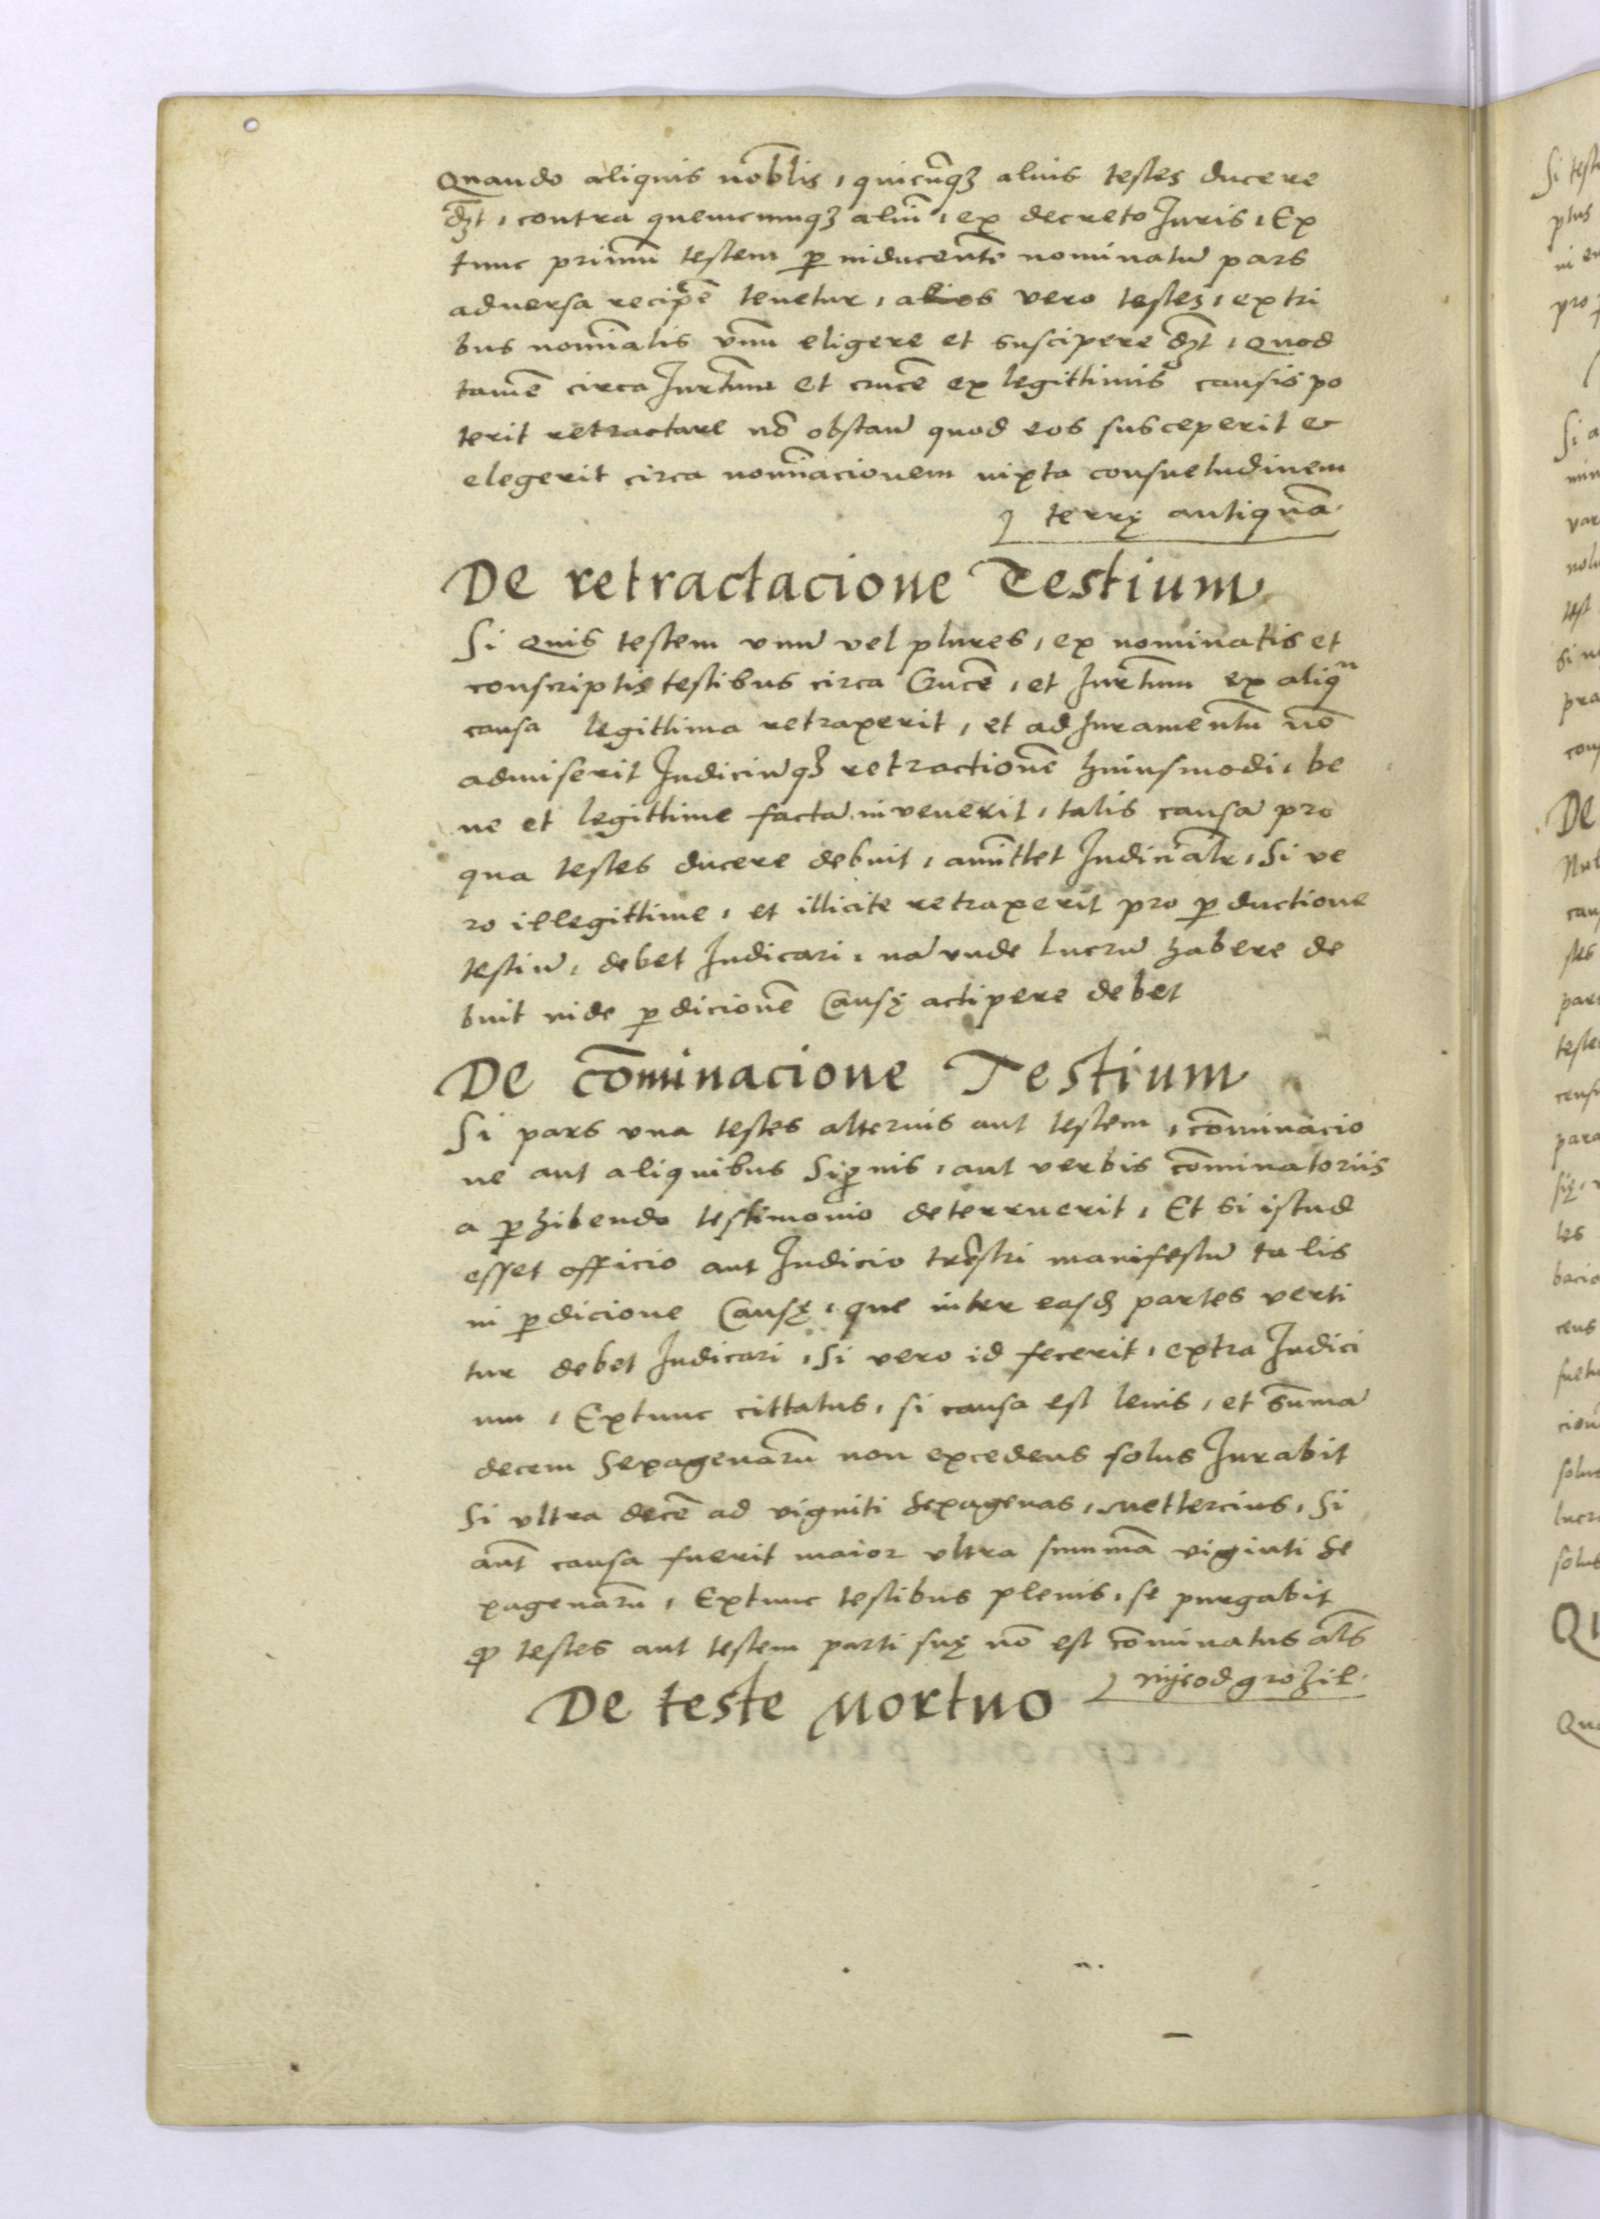 Quando aliquis nob̄lis, quicūqꝫ alius testes ducere
dꝫt, contra quemcumqꝫ aliū, ex decreto Iuris, Ex
tunc primū testem ꝑ inducentē nominatū pars
aduersa recipe᷒ tenetur, alios vero testes, ex tri
bus nominatis vnū eligere et suscipere dꝫt, quod
tamē circa Iurm̄tum et crucē ex legittimis causis po
terit retractare nō obstan̄ quod eos susceperit et
elegerit circa noīacionem iuxta consuetudinem
terrę antiquā.
De retractacione Testium
Si quis testem vnū vel plures, ex nominatis et
conscriptis testibus circa Crucē, et Iurm̄tum ex aliqua
causa legittima retraxerit, et ad Iuramentū nō
admiserit Iudiciūqꝫ retractionē huiusmodi, be
ne et legittime factā inuenerit, talis causā pro
qua testes ducere debuit, amittet Iudicialr̄, Si ve
ro illegittime, et illicite retraxerit pro ꝑductione
testiū, debet Iudicari, nā vnde lucrū habere de
buit inde ꝑdicionē Causę accipere debet
De cōminacione Testium
Si pars vna testes alterius aut testem, cōminacio
ne aut aliquibus Signis, aut verbis cōminatoriis
a ꝑhibendo testimonio deterruerit, Et si istud
esset officio aut Iudicio trr̄estri manifestū talis
in ꝑdicione Causę, que inter easdꝫ partes verti
tur debet Iudicari, Si vero id fecerit, extra Iudici
um, Extunc cittatus, si causa est leuis, et Sūmā
decem Sexagenarū non excedens solus Iurabit
Si vltra decē ad viginti Sexagenas, mettercius, Si
aūt causa fuerit maior vltra summā viginti Se
xagenarū, Extunc testibus plenis, se purgabit
ꝙ testes aut testem parti suę nō est cōminatus al̄s
nyeodgrozil.
De teste Mortuo